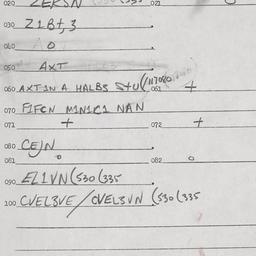 020 ZEKSN 021
030 Z1Bt,3
040 O
050 AXT
060 AXT1N A HALBS StU( 061 +
070 F1FCN M1N1C1 NAN
071 + 072 +
080 CEJN
081 o 082 o
090 EL1VN(530(335
100 CVEL3VE/CVEL3VN (530(335